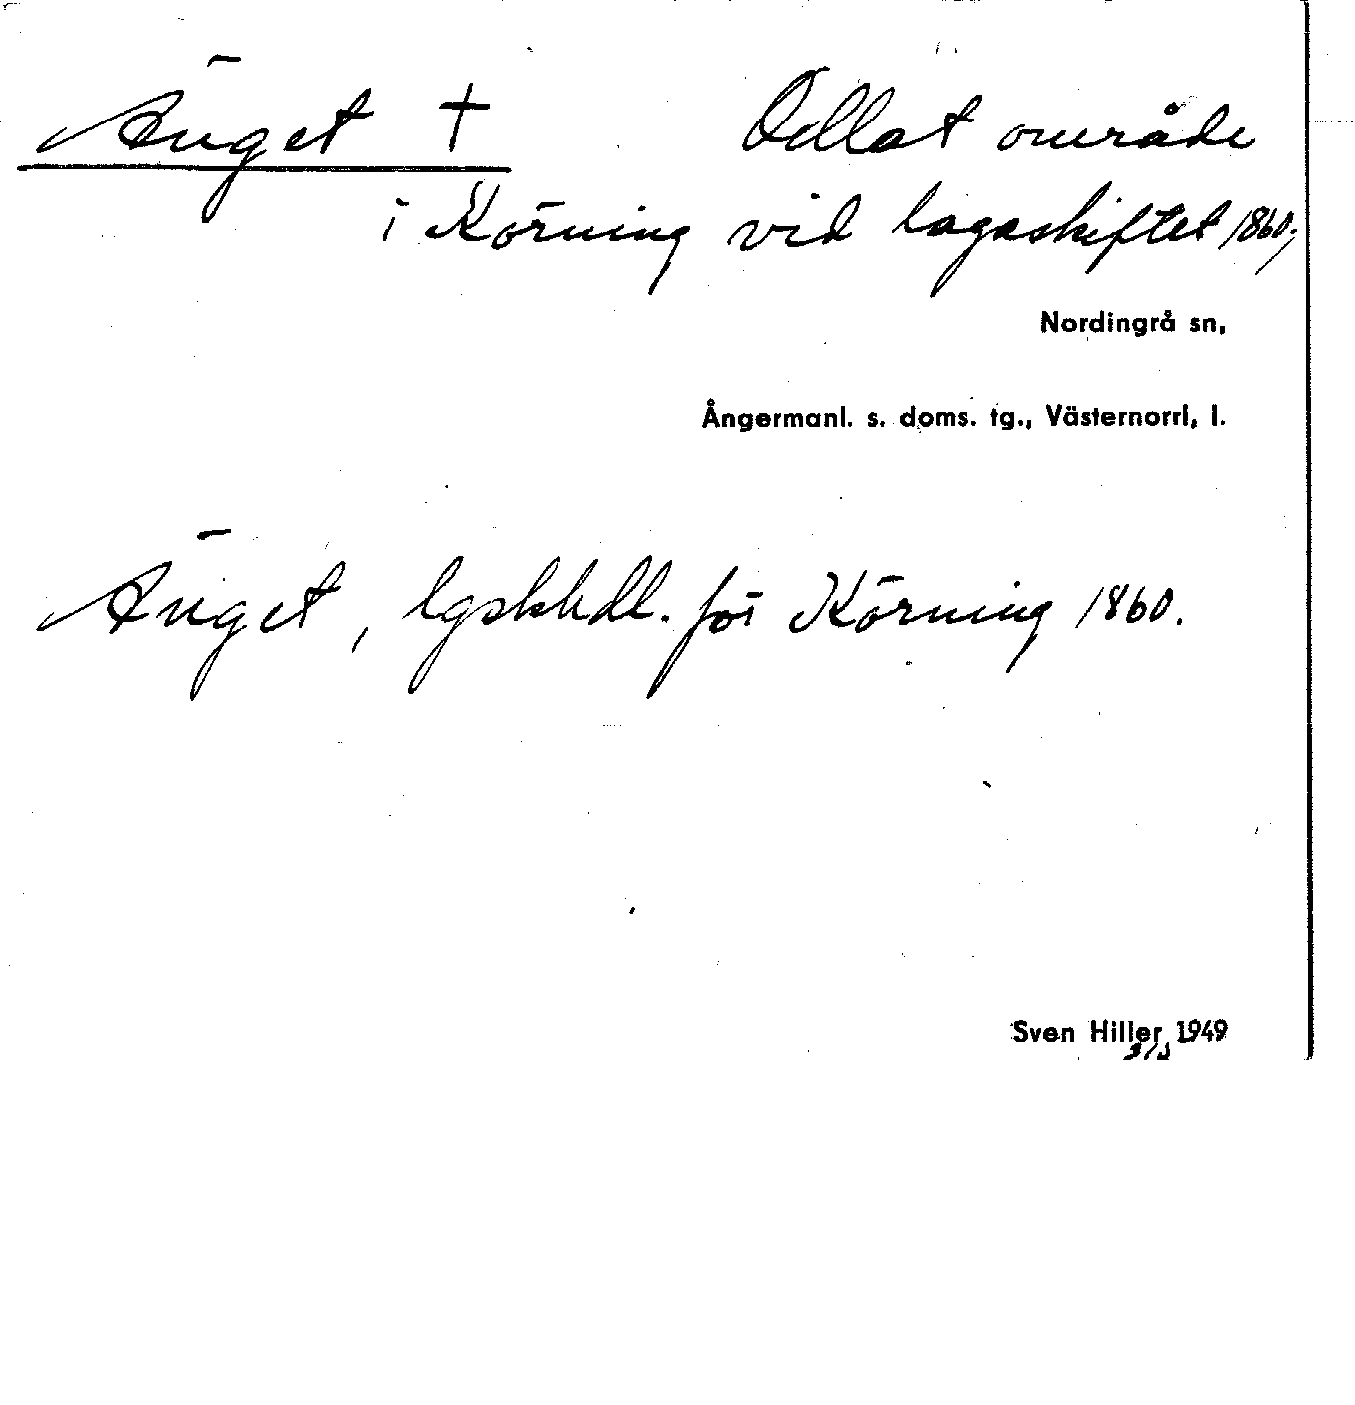 Änget † Odlat område
i Körning vid lagaskiftet 1860;
Nordingrå sn,
Ångermanl. s. doms. tg., Västernorrl, l.
Änget, lgskhdl. för Körning 1860.
Sven Hiller 1949